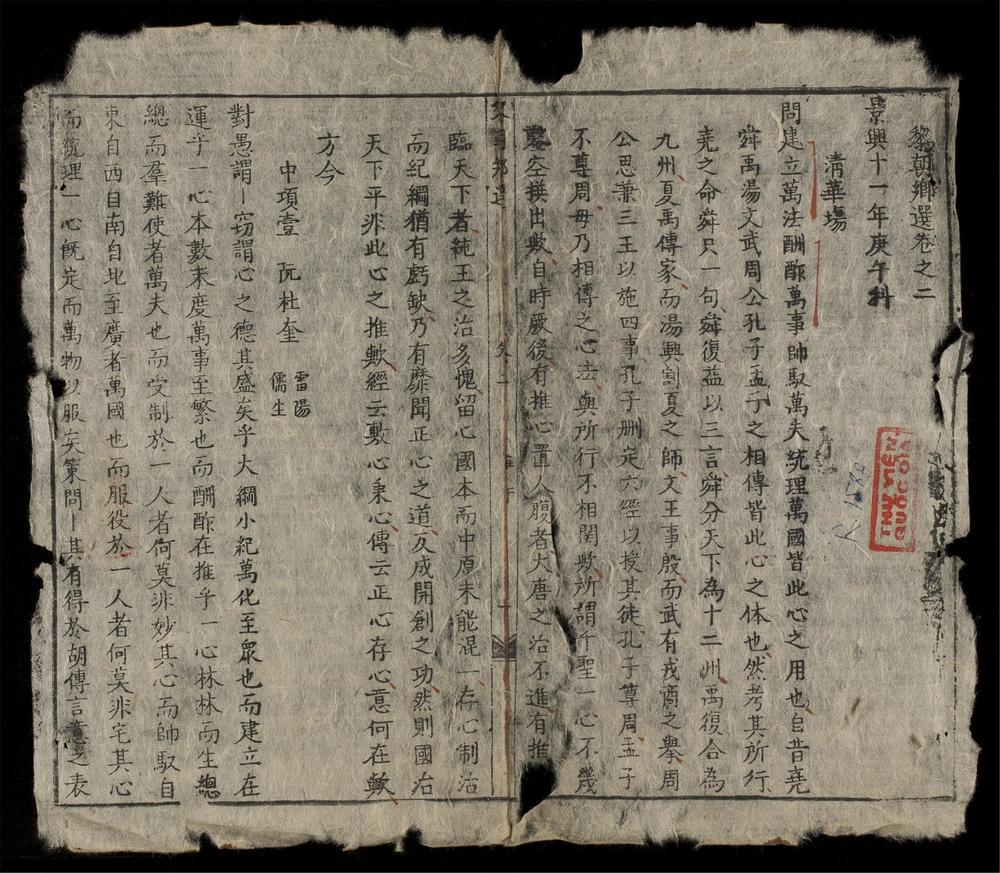 黎朝鄉選卷之二
景興十一年庚午科
清華場
問建立萬法酬酢萬事帥馭萬夫統理萬國皆此心之用也自昔堯
舜禹湯文武周公孔子孟子之相傳皆此心之体也然考其所行
堯之命舜只一句舜復益以三言舜分天下為十二州禹復合為
九州夏禹傳家而湯興割夏之師文王事殷而武有戎商之舉周
公思兼三王以施四事孔子刪定六經以授其徒孔子尊周孟子
不尊周毋乃相傳之心法與所行不相関歟所謂千聖一心不幾
鑿空撰出歟自時厥後有推心置人腹者大唐之治不進有推
臨天下者純王之治多愧留心國本而中原未能混一存心制治
而紀綱猶有虧缺乃有靡聞正心之道反成開創之功然則國治
天下平非此心之推歟經云敷心秉心傳云正心存心意何在歟
方今
中項壹 阮杜奎 雷陽
儒生
對愚謂竊謂心之德其盛矣乎大綱小紀萬化至眾也而建立在
運乎一心本數末度萬事至繁也而酬酢在推乎一心林林而生總
總而羣難使者萬夫也而受制於一人者何莫非妙其心而帥馭自
東自西自南自北至廣者萬國也而服役於一人者何莫非宅其心
而統理一心既定而萬物以服矣策問其有得於胡傳言意之表
THƯ VIỆN
QUỐC GIA
R. 1590